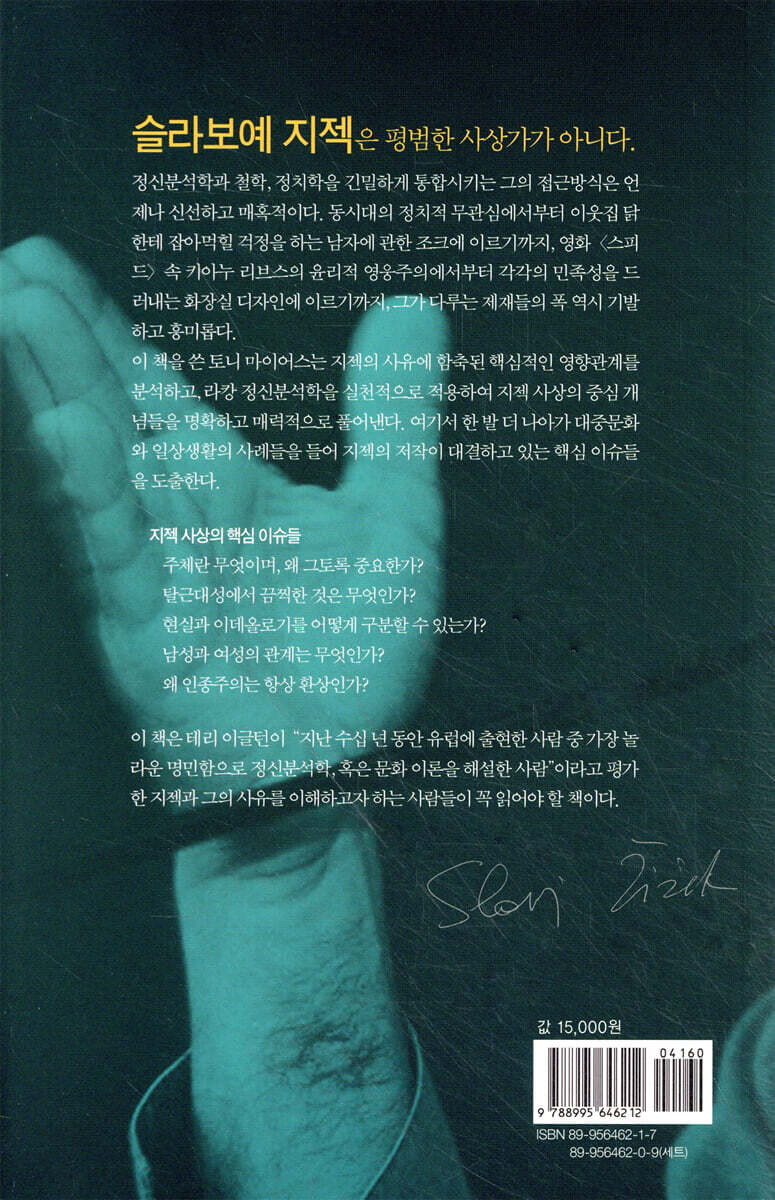 슬라보예 지젝은 평범한 사상가가 아니다.
정신분석학과 철학, 정치학을 긴밀하게 통합시키는 그의 접근방식은 언
제나 신선하고 매혹적이다. 동시대의 정치적 무관심에서부터 이웃집 닭
한테 잡아먹힐 걱정을 하는 남자에 관한 조크에 이르기까지, 영화 〈스피
드〉 속 키아누 리브스의 윤리적 영웅주의에서부터 각각의 민족성을 드
러내는 화장실 디자인에 이르기까지, 그가 다루는 제재들의 폭 역시 기발
하고 흥미롭다.
이 책을 쓴 토니 마이어스는 지젝의 사유에 함축된 핵심적인 영향관계를
분석하고, 라캉 정신분석학을 실천적으로 적용하여 지젝 사상의 중심 개
념들을 명확하고 매력적으로 풀어낸다. 여기서 한 발 더 나아가 대중문화
와 일상생활의 사례들을 들어 지젝의 저작이 대결하고 있는 핵심 이슈들
을 도출한다.
지젝 사상의 핵심 이슈들
주체란 무엇이며, 왜 그토록 중요한가?
탈근대성에서 끔찍한 것은 무엇인가?
현실과 이데올로기를 어떻게 구분할 수 있는가?
남성과 여성의 관계는 무엇인가?
왜 인종주의는 항상 환상인가?
이 책은 테리 이글턴이 “지난 수십 년 동안 유럽에 출현한 사람 중 가장 놀
라운 명민함으로 정신분석학, 혹은 문화 이론을 해설한 사람”이라고 평가
한 지젝과 그의 사유를 이해하고자 하는 사람들이 꼭 읽어야 할 책이다.
값 15,000원
04160
9 788995 646212
ISBN 89-956462-1-7
89-956462-0-9(세트)